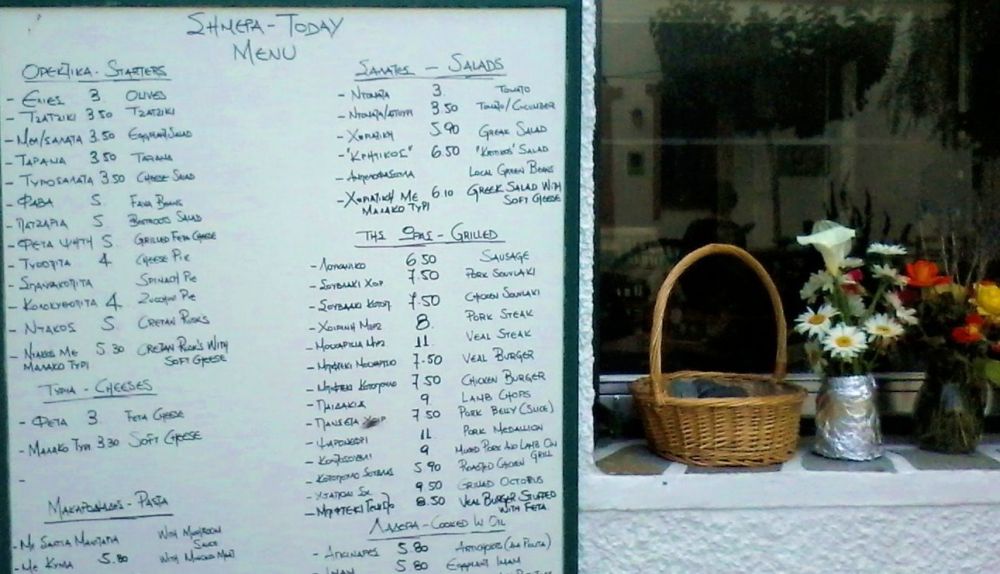 ΣΗΜΕΡΑ - TODAY
MENU
ΟΡΕΚΤΙΚΑ - STARTERS
- ΕΛΙΕΣ 3. OLIVES
- ΤΖΑΤΖΙΚΙ 3.50 TZATZIKI
- ΜΕΛ/ΣΑΛΑΤΑ 3.50 EGGPLANT SALAD
- ΤΑΡΑΜΑ 3.50 TARAMA
- ΤΥΡΟΣΑΛΑΤΑ 3.50 CHEESE SALAD
- ΦΑΒΑ 5. FAVA BEANS
- ΠΑΤΖΑΡΙΑ 5 BEETROOTS SALAD
- ΦΕΤΑ ΨΗΤΗ 5 GRILLED FETA CHEESE
- ΤΥΡΟΠΙΤΑ 4 CHEESE PIE
- ΣΠΑΝΑΚΟΠΙΤΑ SPINACH PIE
- ΚΟΛΟΚΥΘΟΠΙΤΑ 4. ZUCCHINI PIE
- ΝΤΑΚΟΣ 5. CRETAN RUSKS
- ΝΤΑΚΟΣ ΜΕ 5.30 CRETAN RUSKS WITH
ΜΑΛΑΚΟ ΤΥΡΙ SOFT CHEESE
ΤΥΡΙΑ - CHEESES
- ΦΕΤΑ 3 FETA CHEESE
- ΜΑΛΑΚΟ ΤΥΡΙ 3.30 SOFT CHEESE
-
ΜΑΚΑΡΟΝΑΔΕΣ - PASTA
- ΜΕ ΣΑΛΤΣΑ ΜΑΝΙΤΑΡΙΑ WITH MUSHROOM
SAUCE
- ΜΕ ΚΥΜΑ 5.80 WITH MINCED MEAT
ΣΑΛΑΤΕΣ - SALADS
- ΝΤΟΜΑΤΑ 3. TOMATO
- ΝΤΟΜΑΤΑ/ΑΓΓΟΥΡΙ 3.50 TOMATO/CUCUMBER
- ΧΩΡΙΑΤΙΚΗ 5.90 GREEK SALAD
- "ΚΡΗΤΙΚΟΣ" 6.50 "KRITIKOS" SALAD
- ΑΜΠΕΛΟΦΑΣΟΥΛΑ LOCAL GREEN BEANS
- ΧΩΡΙΑΤΙΚΗ ΜΕ 6.10 GREEK SALAD WITH
ΜΑΛΑΚΟ ΤΥΡΙ SOFT CHEESE
ΤΗΣ ΩΡΑΣ - GRILLED
- ΛΟΥΚΑΝΙΚΟ 6.50 SAUSAGE
- ΣΟΥΒΛΑΚΙ ΧΟΙΡ 7.50 PORK SOUVLAKI
- ΣΟΥΒΛΑΚΙ ΚΟΤΟΠ 7.50 CHICKEN SOUVLAKI
- ΧΟΙΡΙΝΗ ΜΠΡΙΖ 8. PORK STEAK
- ΜΟΣΧΑΡΙΣΙΑ ΜΠΡΙΖ 11. VEAL STEAK
- ΜΠΙΦΤΕΚΙ ΜΟΣΧΑΡΙΣΙΟ 7.50 VEAL BURGER
- ΜΠΙΦΤΕΚΙ ΚΟΤΟΠΟΥΛΟ 7.50 CHICKEN BURGER
- ΠΑΙΔΑΚΙΑ 9 LAMB CHOPS
- ΠΑΝΣΕΤΑ ΧΟΙΡ 7.50 PORK BELLY (SLICE)
- ΨΑΡΟΝΕΦΡΙ 11 PORK MEDALLION
- ΚΟΝΤΟΣΟΥΒΛΙ 9 MIXED PORK AND LAMB ON
GRILL
- ΚΟΤΟΠΟΥΛΟ ΣΟΥΒΛΑΣ 5.90 ROASTED CHICKEN
- ΧΤΑΠΟΔΙ ΣΧ. 9.50 GRILLED OCTOPUS
- ΜΠΙΦΤΕΚΙ ΓΕΜΙΣΤΟ 8.50 VEAL BURGER STUFFED
WITH FETA
ΛΑΔΕΡΑ - COOKED W OIL
- ΑΓΚΙΝΑΡΕΣ 5.80 ARTICHOKES (ALA POLITA)
- ΙΜΑΜ 5.80 EGGPLANT IMAM